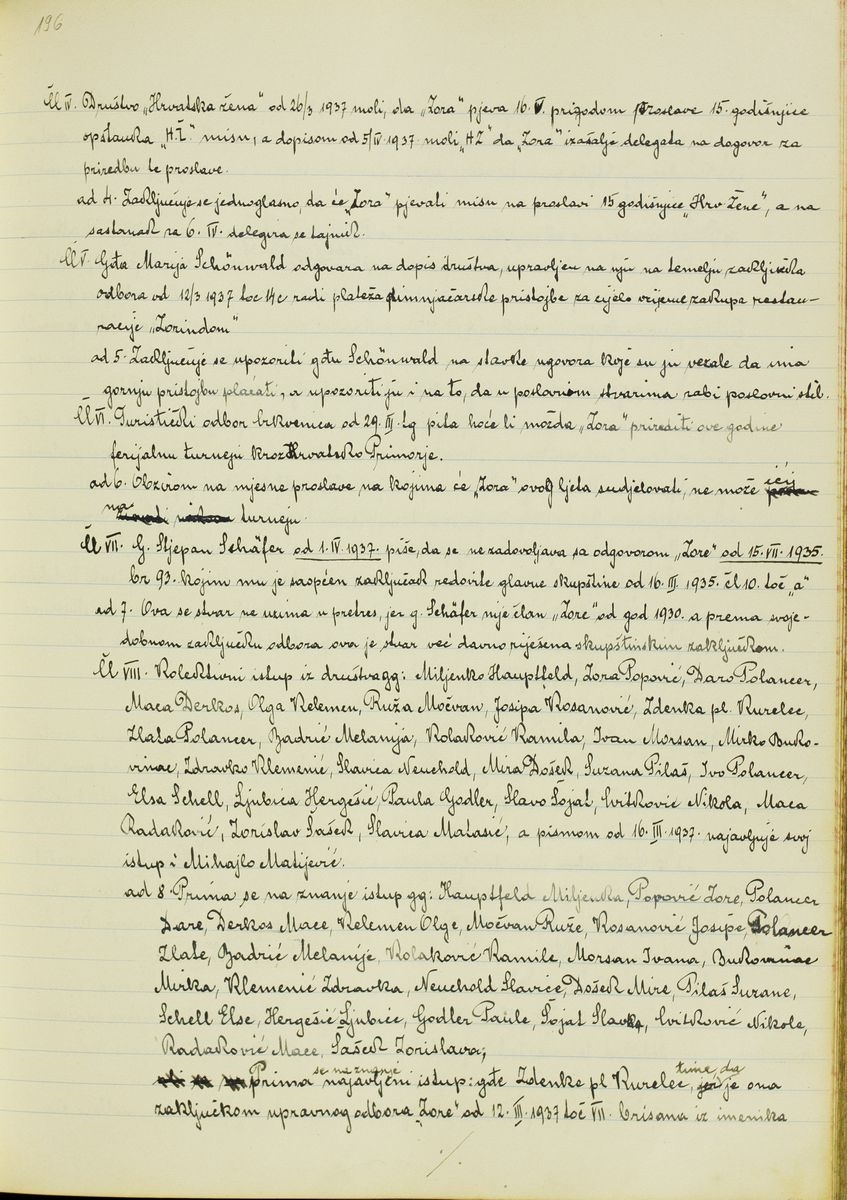 196
Čl IV. Društvo „Hrvatska žena" od 26/3 1937 moli, da „Zora" pjeva 16. V. prigodom proslave 15. godišnjice
opstanka „H.Ž." misu, a dopisom od 5/IV 1937 moli „HŽ" da „Zora" izašalje delegata na dogovor za
priredbu te proslave.
ad 4. Zaključuje se jednoglasno, da će „Zora" pjevati misu na proslavi 15 godišnjice „Hrv. Žene", a na
sastanak za 6. IV. delegira se tajnik.
Čl V. Gđa Marija Schönwald odgovara na dopis društva, upravljen na nju na temelju zaključka
odbora od 12/3 1937 toč 14c radi plateža dimnjačarske pristojbe za cijelo vrijeme zakupa restau-
racije „Zorindom"
ad 5. Zaključuje se upozoriti gđu Schönwald na stavke ugovora koje su ju vezale da ima
gornju pristojbu plaćati, a upozoriti ju i na to, da u poslovnim stvarima rabi poslovni stil.
Čl VI. Turistički odbor Crkvenica od 29. III. tg pita hoće li možda „Zora" prirediti ove godine
ferijalnu turneju kroz Hrvatsko Primorje.
ad 6. Obzirom na mjesne proslave na kojima će „Zora" ovog ljeta sudjelovati, ne može ići
na turneju.
Čl VII. G. Stjepan Schäfer od 1. IV. 1937. piše, da se ne zadovoljava sa odgovorom „Zore" od 15. VII. 1935.
br 93. kojim mu je saopćen zaključak redovite glavne skupštine od 16. III. 1935. čl 10. toč „a"
ad 7. Ova se stvar ne uzima u pretres, jer g. Schäfer nije član „Zore" od god 1930. a prema svoje-
dobnom zaključku odbora ova je stvar već davno riješena skupštinskim zaključkom.
Čl VIII. Kolektivni istup iz društva gg: Miljenko Hauptfeld, Zora Popović, Daro Polancer,
Maca Derkos, Olga Kelemen, Ruža Močvan, Josipa Kosanović, Zdenka pl. Kurelec,
Zlata Polancer, Badrić Melanija, Kolaković Kamila, Ivan Morsan, Mirko Buko-
vinac, Zdravko Klemenić, Slavica Neuchold, Mira Došek, Suzana Pilaš, Ivo Polancer,
Elsa Schell, Ljubica Hergešić, Paula Godler, Slavo Šojat, Cvitković Nikola, Maca
Radaković, Zorislav Šašek, Slavica Matasić, a pismom od 16. III. 1937. najavljuje svoj
istup i Mihajlo Matijević.
ad 8. Prima se na znanje istup gg: Hauptfeld Miljenka, Popović Zore, Polancer
Dare, Derkos Mace, Kelemen Olge, Močvan Ruže, Kosanović Josipe, Polancer
Zlate, Badrić Melanije, Kolaković Kamile, Morsan Ivana, Bukovinac
Mirka, Klemenić Zdravka, Neuchold Slavice, Došek Mire, Pilaš Suzane,
Schell Else, Hergešić Ljubice, Godler Paule, Šojat Slavka, Cvitković Nikole,
Radaković Mace, Šašek Zorislava;
Prima se na znanje najavljeni istup: gđe Zdenke pl Kurelec, time, da je ona
zaključkom upravnog odbora „Zore" od 12. III. 1937 toč VII. brisana iz imenika
./.